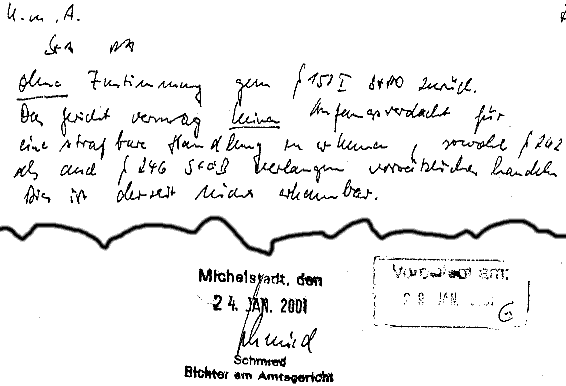 U. m. A.
StA DA
ohne Zustimmung gem § 153 I StPO zurück.
Das Gericht vermag keinen Anfangsverdacht für
eine strafbare Handlung zu erkennen, sowohl § 242
als auch § 246 StGB verlangen vorsätzliches Handeln
Dies ist derzeit nicht erkennbar.
Michelstadt, den
24. JAN. 2001
Schmied
Schmied
Richter am Amtsgericht
Vorgelegt am:
JAN.